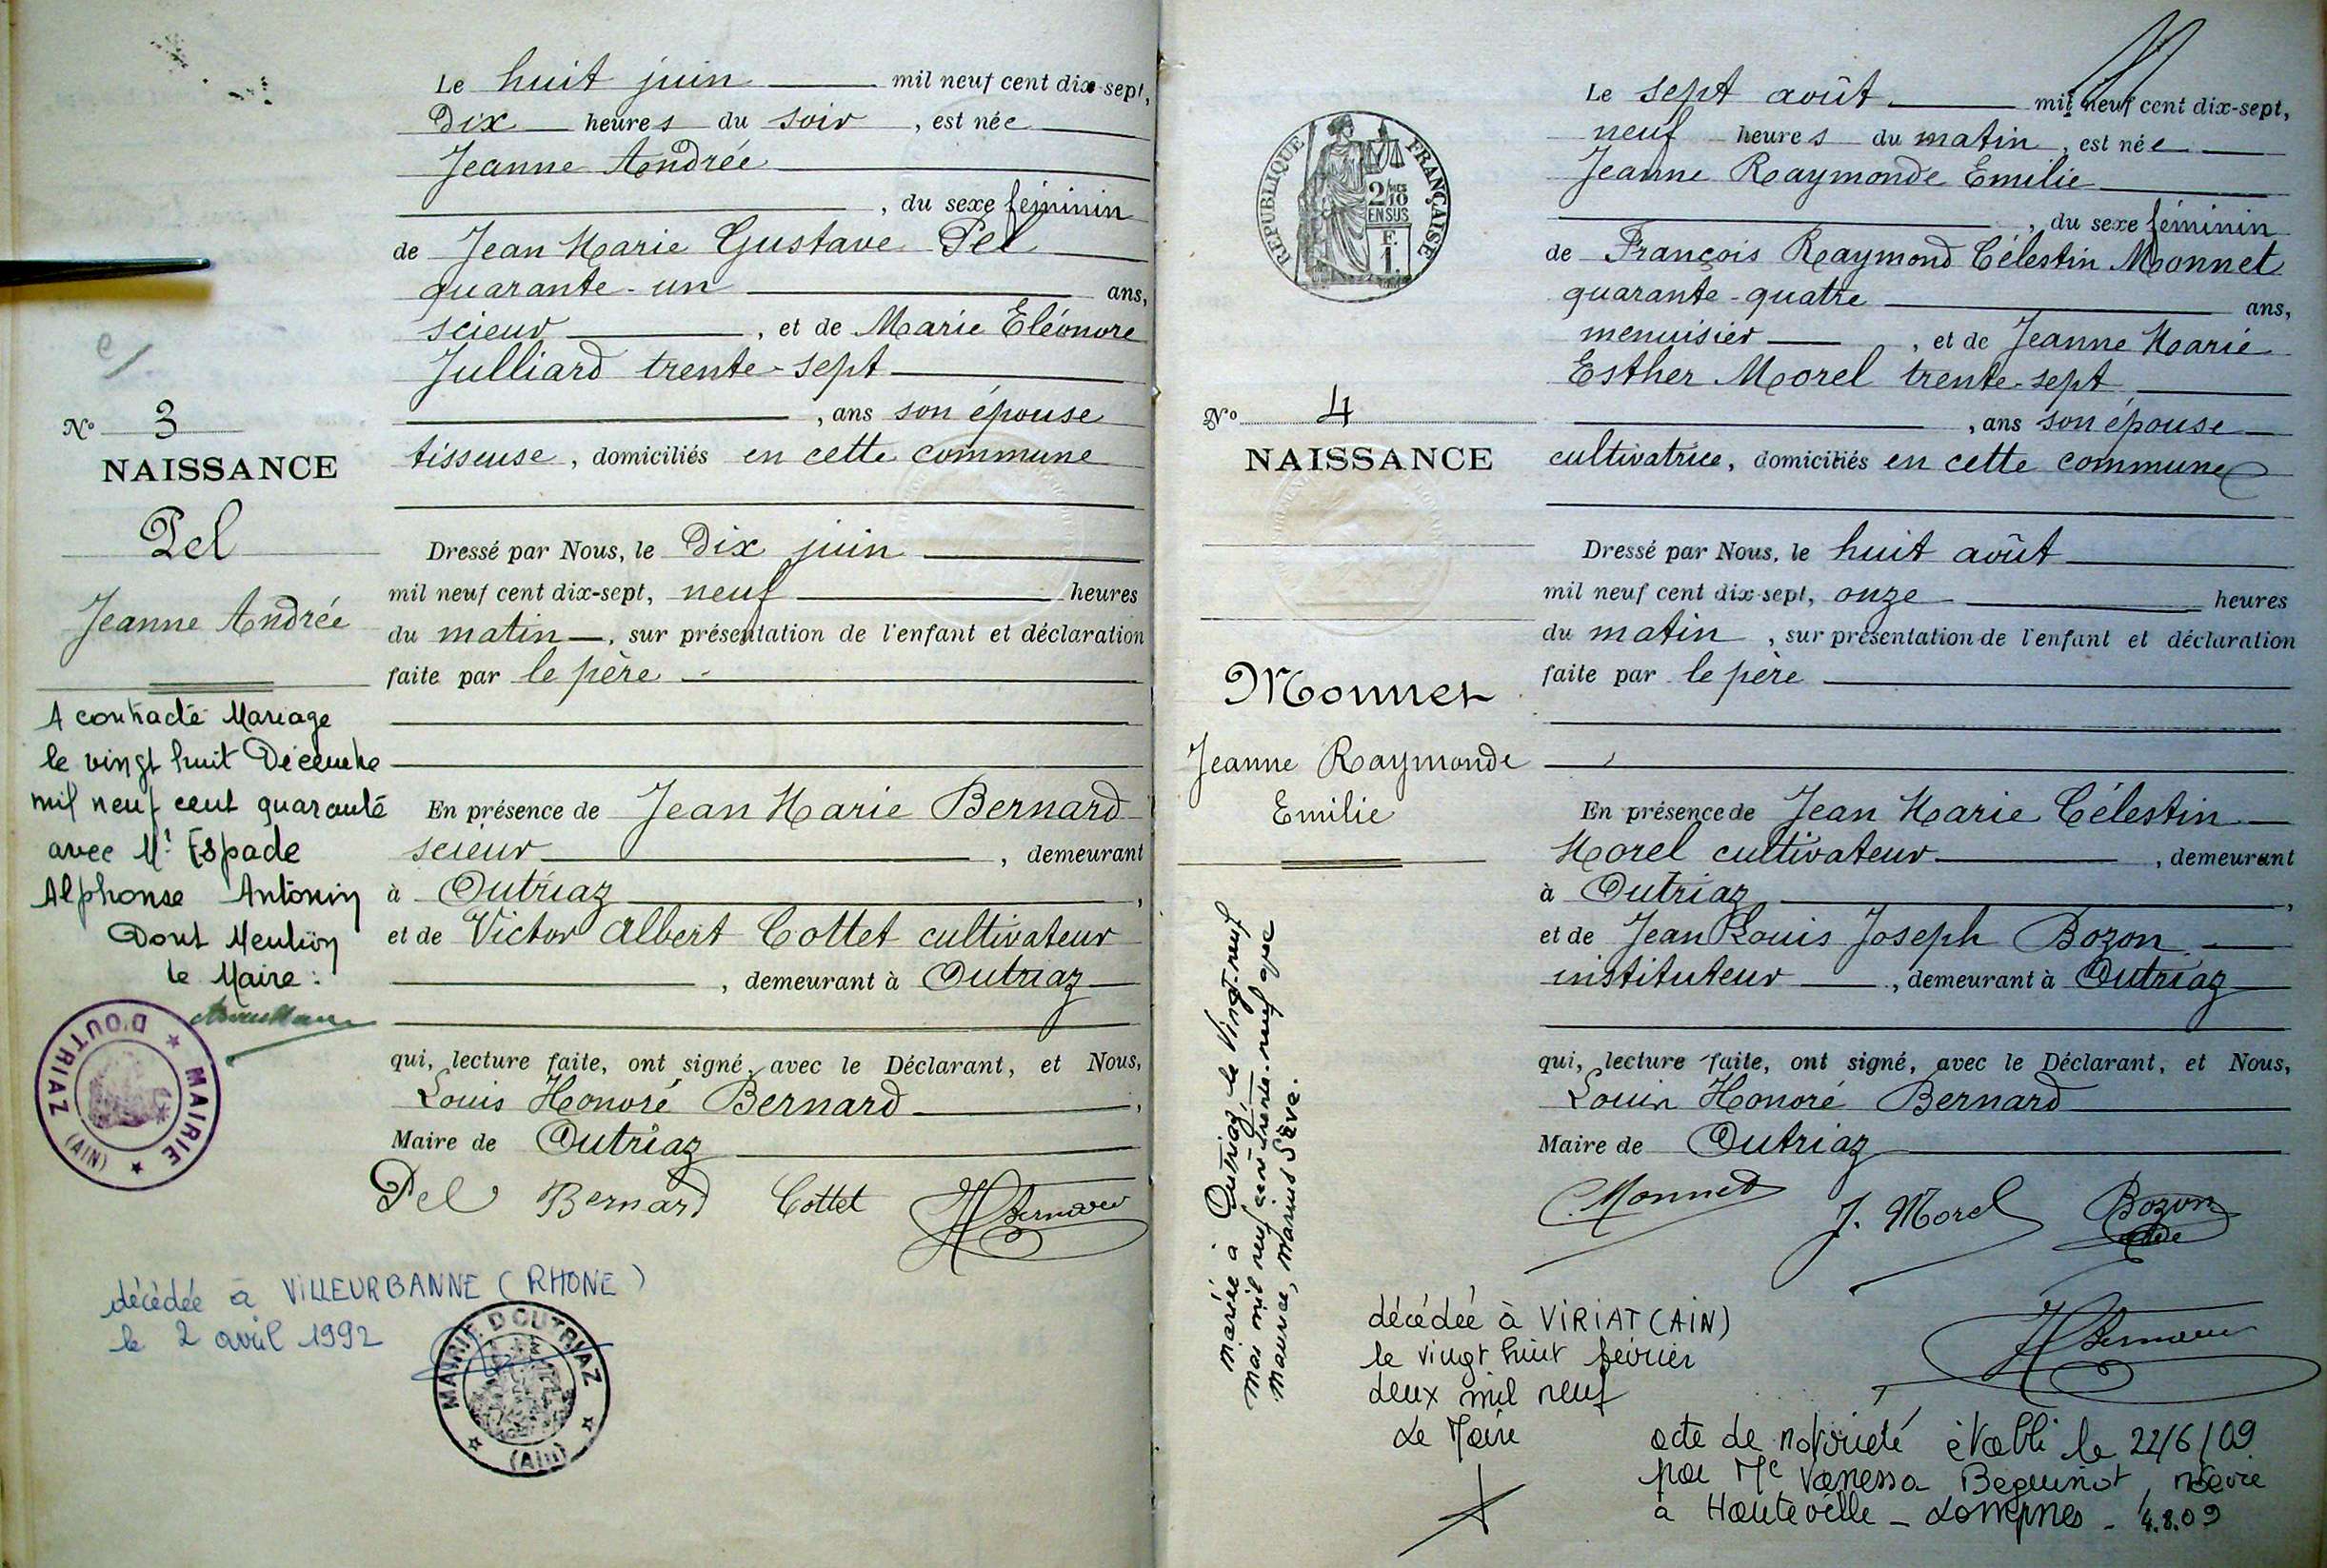 Le huit juin mil neuf cent dix-sept,
Dix heures du soir, est née
Jeanne Andrée
, du sexe féminin
de Jean Marie Gustave Pel
quarante-un ans,
scieur, et de Marie Eléonore
Julliard trente-sept
, ans son épouse
tisseuse, domiciliés en cette commune
Dressé par Nous, le Dix juin
mil neuf cent dix-sept, neuf heures
du matin, sur présentation de l'enfant et déclaration
faite par le père
En présence de Jean Marie Bernard
scieur, demeurant
à Outriaz,
et de Victor Albert Cottet cultivateur
, demeurant à Outriaz
qui, lecture faite, ont signé, avec le Déclarant, et Nous,
Louis Honoré Bernard,
Maire de Outriaz
Pel Bernard Cottet HBernard
No 3
NAISSANCE
Pel
Jeanne Andrée
A contracté Mariage
le vingt huit Décembre
mil neuf cent quarante
avec Mr Espade
Alphonse Antonin
Dont Mention
le Maire :
MAIRIE D'OUTRIAZ (AIN)
décédée à VILLEURBANNE (RHONE)
le 2 avril 1992
MAIRIE D'OUTRIAZ (Ain)
Le sept août mil neuf cent dix-sept,
neuf heures du matin, est née
Jeanne Raymonde Emilie
, du sexe féminin
de François Raymond Célestin Monnet
quarante-quatre ans,
menuisier, et de Jeanne Marie
Esther Morel trente-sept
, ans son épouse
cultivatrice, domiciliés en cette commune
Dressé par Nous, le huit août
mil neuf cent dix-sept, onze heures
du matin, sur présentation de l'enfant et déclaration
faite par le père
En présence de Jean Marie Célestin
Morel cultivateur, demeurant
à Outriaz,
et de Jean Louis Joseph Bozon
instituteur, demeurant à Outriaz
qui, lecture faite, ont signé, avec le Déclarant, et Nous,
Louis Honoré Bernard
Maire de Outriaz
C. Monnet J. Morel Bozon
HBernard
REPUBLIQUE FRANÇAISE
2/10
EN SUS
F.
1.
No 4
NAISSANCE
Monnet
Jeanne Raymonde
Emilie
mariée à Outriaz, le Vingt-neuf
mai mil neuf cent trente-neuf avec
Maurice, Marius Sève.
décédée à VIRIAT (AIN)
le vingt huit février
deux mil neuf
Le Maire
acte de notoriété établi le 22/6/09
par Me Vanessa Beguinot, notaire
à Hauteville-Lompnes - 4.8.09